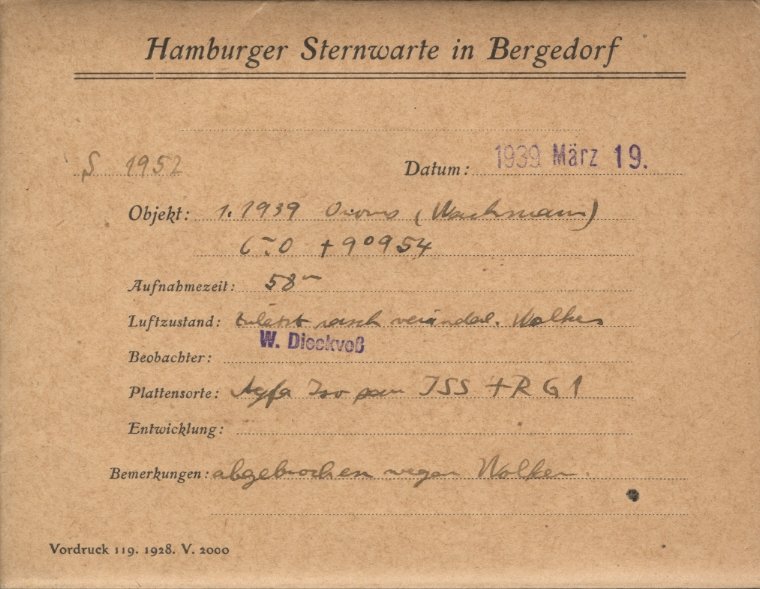 Hamburger Sternwarte in Bergedorf
S 1952 Datum: 1939 März 19.
Objekt: 1. 1939 Orionis (Wachmann)
+9°954
Aufnahmezeit: 58m
Luftzustand: zuletzt rasch veränderl. Wolken
W. Dieckvoß
Beobachter:
Plattensorte: Agfa Iso pan ISS + RG1
Entwicklung:
Bemerkungen: abgebrochen wegen Wolken.
Vordruck 119. 1928. V. 2000